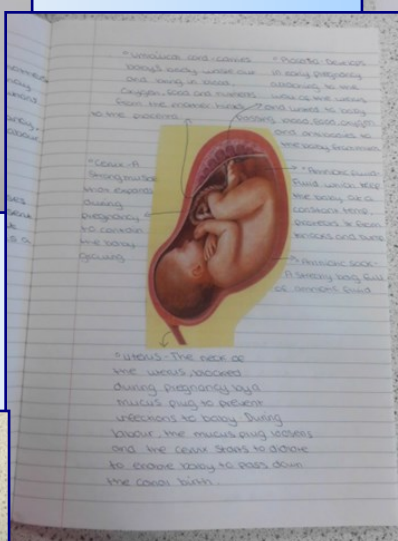 * Umbilical cord - carries
baby's body waste out
and bring in blood,
Oxygen, food and nutrients
from the mother
to the placenta.
* Placenta - Develops
in early pregnancy
attaching to the
wall of the uterus
and linked to baby
blood, food, oxygen
and antibodies to
the baby
* Cervix - A
Strong muscle
that expands
during
pregnancy
to contain
the baby
growing
* Amniotic fluid -
Fluid, which keep
the baby at a
constant temp,
protects it from
knocks and
* Amniotic sack -
A stretchy bag full
of amniotic fluid
* Uterus - The neck of
the uterus, blocked
during pregnancy by a
mucus plug to prevent
infections to baby. During
labour, the mucus plug loosens
and the cervix starts to dilate
to enable baby to pass down
the canal birth.